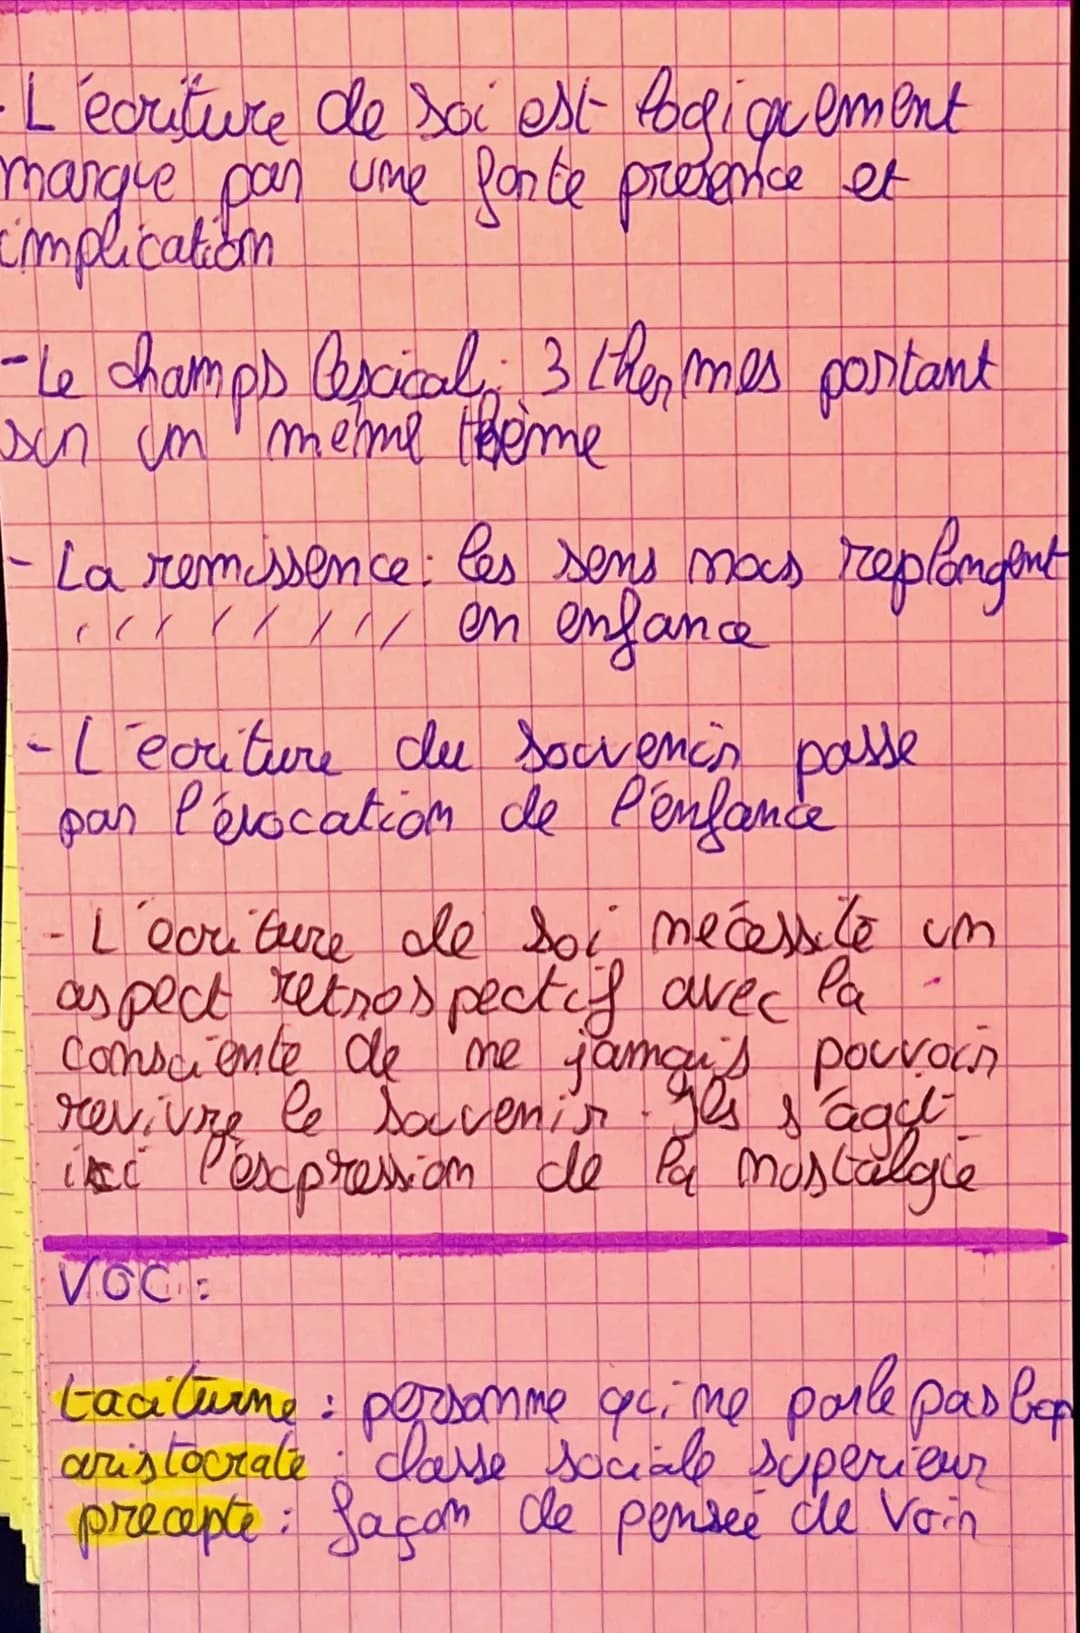 - L'écriture de soi est logiquement
marque par une forte présence et
implication
- Le champs lescical : 3 thermes portant
sur un même thème
- La remissence : les sens nous replongent
en enfance
- L'écriture du souvenir passe
par l'évocation de l'enfance
- L'écriture de soi nécessite un
aspect retrospectif avec la
consciente de ne jamais pouvoir
revivre le souvenir. Ils s'agit
ici l'éxpression de la nostalgie
VOC :
taciturne : personne qui ne parle pas bcp
aristocrate : classe sociale superieur
precepte : façon de penseé de voir